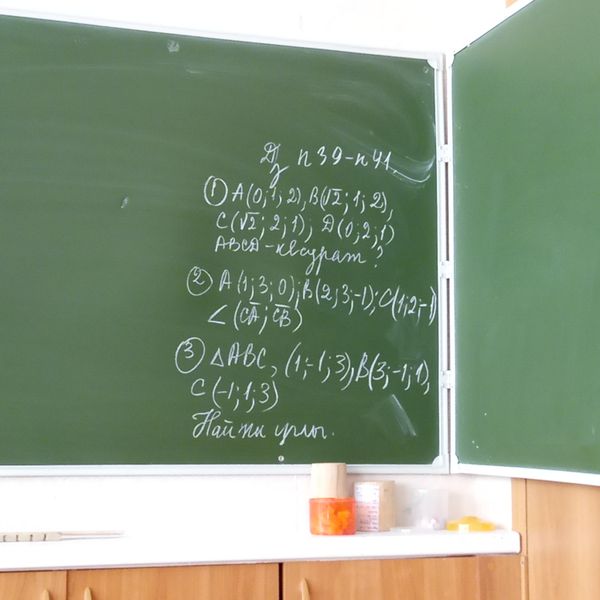 Д/з п 39-п 41.
① A(0; 1; 2), B(√2; 1; 2),
C(√2; 2; 1); D(0; 2; 1)
ABCD-квадрат?
② A(1; 3; 0); B(2; 3; -1); C(1; 2; -1)
∠(CA; CB)
③ △ABC, (1; -1; 3), B(3; -1; 1),
C(-1; 1; 3)
Найти углы.